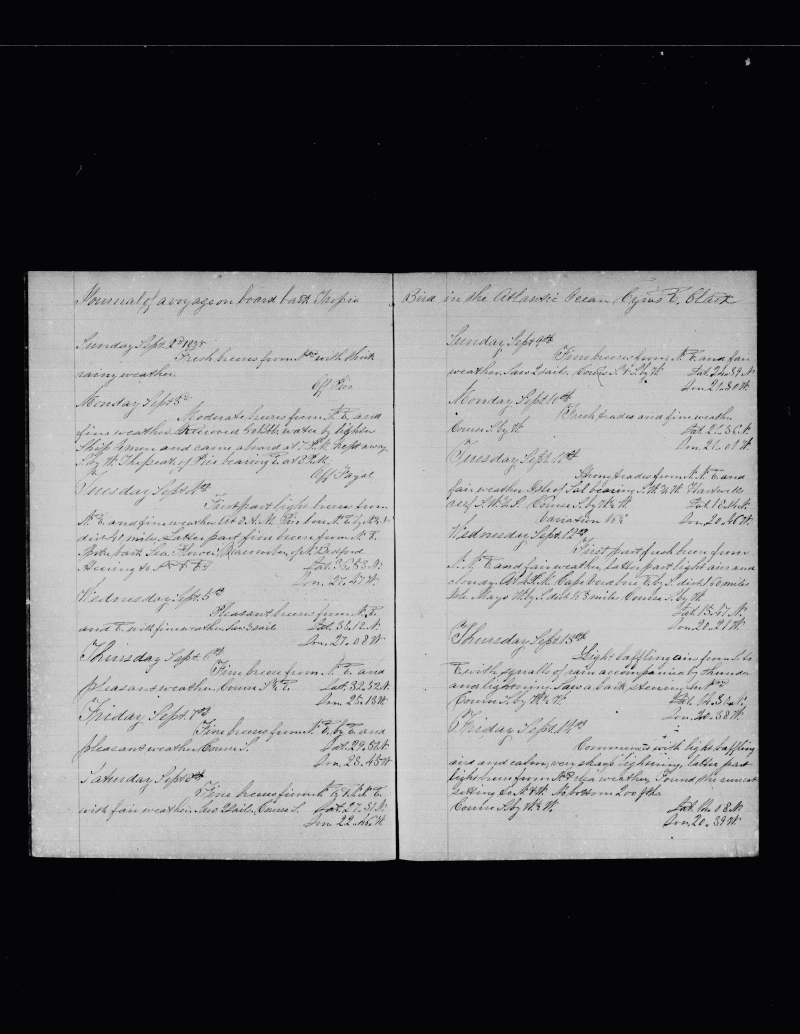 Journal of a voyage on board bark Tropic
Sunday Sept. 2nd 1855
Fresh breeses from with thick
rainy weather.
Off Pico
Monday Sept 3d
Moderate breeses from N. E. and
fine weather. Received of fresh water by lighter
Ship 4 men and came aboard at 7 P.M. kept away
S. by W. The peak of Pico bearing E. at 8 P.M.
Off Fayal
Tuesday Sept 4th
First part light breeses from
N. E. and fine weather. At 3 A.M. Pico bore N. E. by
dist 40 miles. Latter part fine breeses from N. E.
Spoke bark Sea Flower, of N. Bedford
Steering to
Lat. 36.53 N.
Lon. 27.47 W.
Wednesday Sept. 5th
Pleasant breeses from N. E.
and E. with fine weather. Saw 3 sail Lat. 34.12 N.
Lon. 27.08 W.
Thursday Sept 6th
Fine breeses from N. E. and
pleasant weather. Course Lat. 32.32 N.
Lon. 25.18 W.
Friday Sept. 7th
Fine breeses from N. E. by E. and
pleasant weather. Course S. Lat. 29.51 N.
Lon. 23.45 W.
Saturday Sept 8th
Fine breeses from N. E. & N. N. E.
with fair weather. Saw 2 sail. Course S. Lat. 27.31 N.
Lon. 22.46 W.
Bird in the Atlantic Ocean Cyrus E. Clark
Sunday Sept 9th
Fine breeses from N. E. and fair
weather. Saw 2 sail. Course S. & S. by W. Lat. 24.39 N.
Lon. 21.30 W.
Monday Sept 10th
Fresh trades and fine weather
Course S. by W. Lat. 21.36 N.
Lon. 21.01 W.
Tuesday Sept. 11th
Strong trades from N. N. E. and
fair weather. Isle of Sal bearing S. W. ½ W. Hartwell
reef S. W. ½ S. Course S. by W. ½ W. Lat. 18.14 N.
Variation 16° Lon. 20.46 W.
Wednesday Sept. 12th
First part fresh breeses from
N. N. E. and fair weather, latter part light airs and
cloudy. At P.M. Cape Verd bore E. by S. dist 150 miles
Isle Mayo W. by S. dist 163 miles Course S. by W.
Lat. 15.47 N.
Lon. 20.21 W.
Thursday Sept 13th
Light baffling airs from S. to
E. with squalls of rain accompanied by thunder
and lightning. Saw a bark steering
Course S. by W. ½ W. Lat. 14.31 N.
Lon. 20.38 W.
Friday Sept. 14th
Commences with light baffling
airs and calm, very sharp lightning, latter part
light breeses from weather. Found the current
setting No bottom 200 fths.
Course S. by W. ½ W. Lat. 14.08 N.
Lon. 20.39 W.